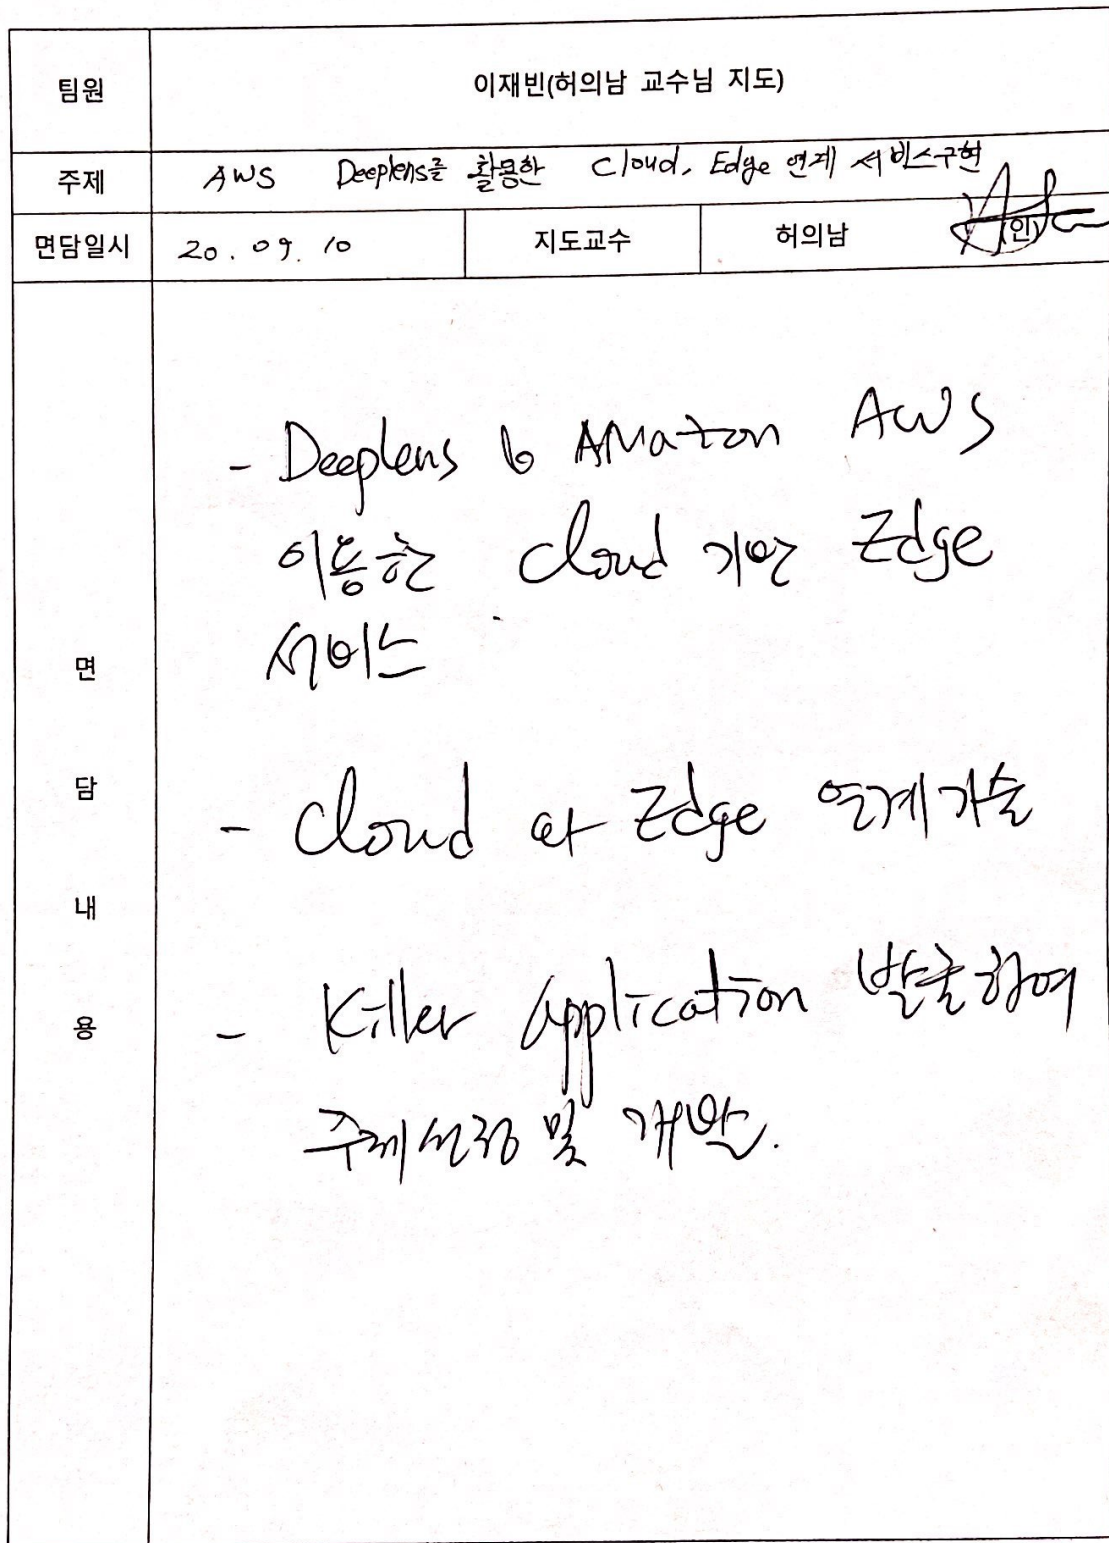 팀원 이재빈(허의남 교수님 지도)
주제 AWS Deeplens를 활용한 Cloud, Edge 연계 서비스구현
면담일시 20. 09. 10 지도교수 허의남 (인)
- Deeplens AMazon AWS
이용한 Cloud 기반 Edge
서비스
- Cloud 와 Edge 연계기술
- Killer Application 발굴하여
주제선정 및 개발.
면
담
내
용